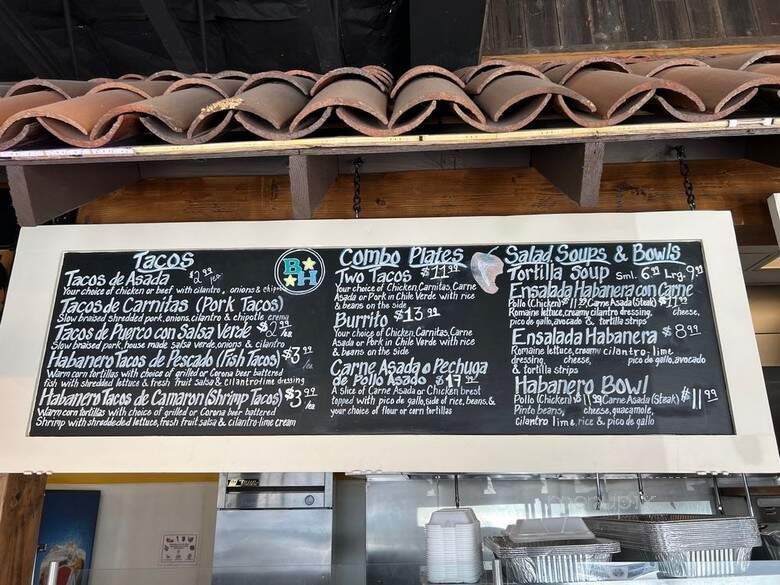 Tacos
Tacos de Asada $2.99/ea
Your choice of chicken or beef with cilantro, onions & chipotle
Tacos de Carnitas (Pork Tacos)
Slow braised shredded pork, onions, cilantro & chipotle crema
Tacos de Puerco con Salsa Verde $2.99/ea
Slow braised pork, house made salsa verde, onions & cilantro
Habanero Tacos de Pescado (Fish Tacos) $3.99/ea
Warm corn tortillas with choice of grilled or Corona beer battered
fish with shredded lettuce & fresh fruit salsa & cilantro-lime dressing
Habanero Tacos de Camaron (Shrimp Tacos) $3.99/ea
Warm corn tortillas with choice of grilled or Corona beer battered
Shrimp with shreddeded lettuce, fresh fruit salsa & cilantro-lime cream
BH
Combo Plates
Two Tacos $11.99
Your choice of Chicken, Carnitas, Carne
Asada or Pork in Chile Verde with rice
& beans on the side
Burrito $13.99
Your choice of Chicken, Carnitas, Carne
Asada or Pork in Chile Verde with rice
& beans on the side
Carne Asada o Pechuga
de Pollo Asado $17.99
A slice of Carne Asada or Chicken brest
topped with pico de gallo, side of rice, beans, &
your choice of flour or corn tortillas
Salad Soups & Bowls
Tortilla Soup Sml. 6.99 Lrg. 9.99
Ensalada Habanera con Carne
Pollo (Chicken) $11.99 Carne Asada (Steak) $11.99
Romaine lettuce, creamy cilantro dressing, cheese,
pico de gallo, avocado & tortilla strips
Ensalada Habanera $8.99
Romaine lettuce, creamy cilantro-lime
dressing, cheese, pico de gallo, avocado
& tortilla strips
Habanero Bowl
Pollo (Chicken) $11.99 Carne Asada (Steak) $11.99
Pinto beans, cheese, guacamole,
cilantro lime, rice & pico de gallo